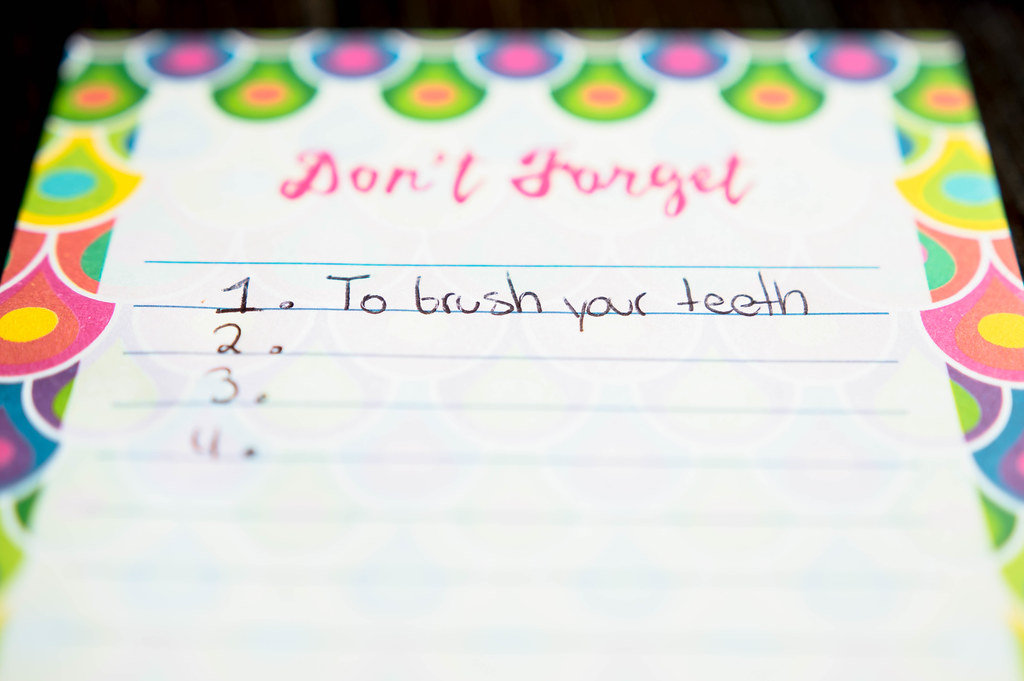 Don't Forget
1. To brush your teeth
2.
3.
4.